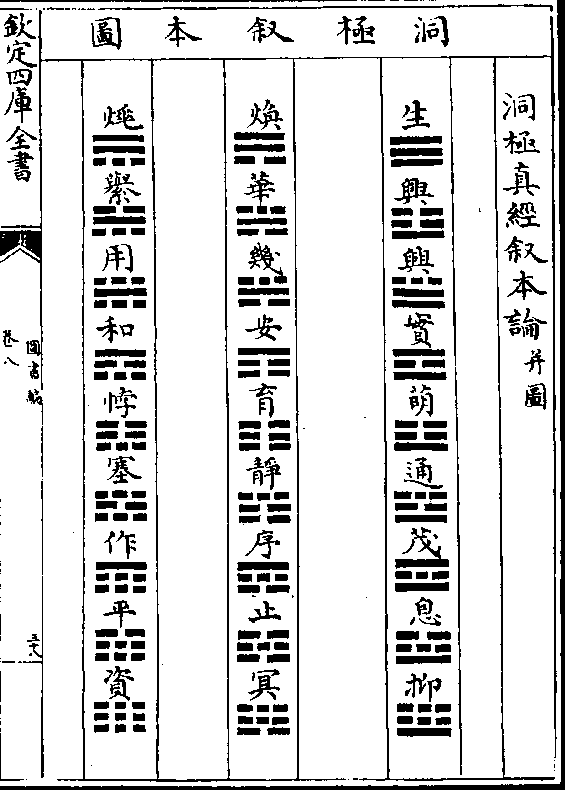 洞極叙本圖
洞極真經叙本論并圖
生興興實萌通茂息抑
煥華幾安育靜序止冥
用和悖塞作平資
欽定四庫全書
卷八